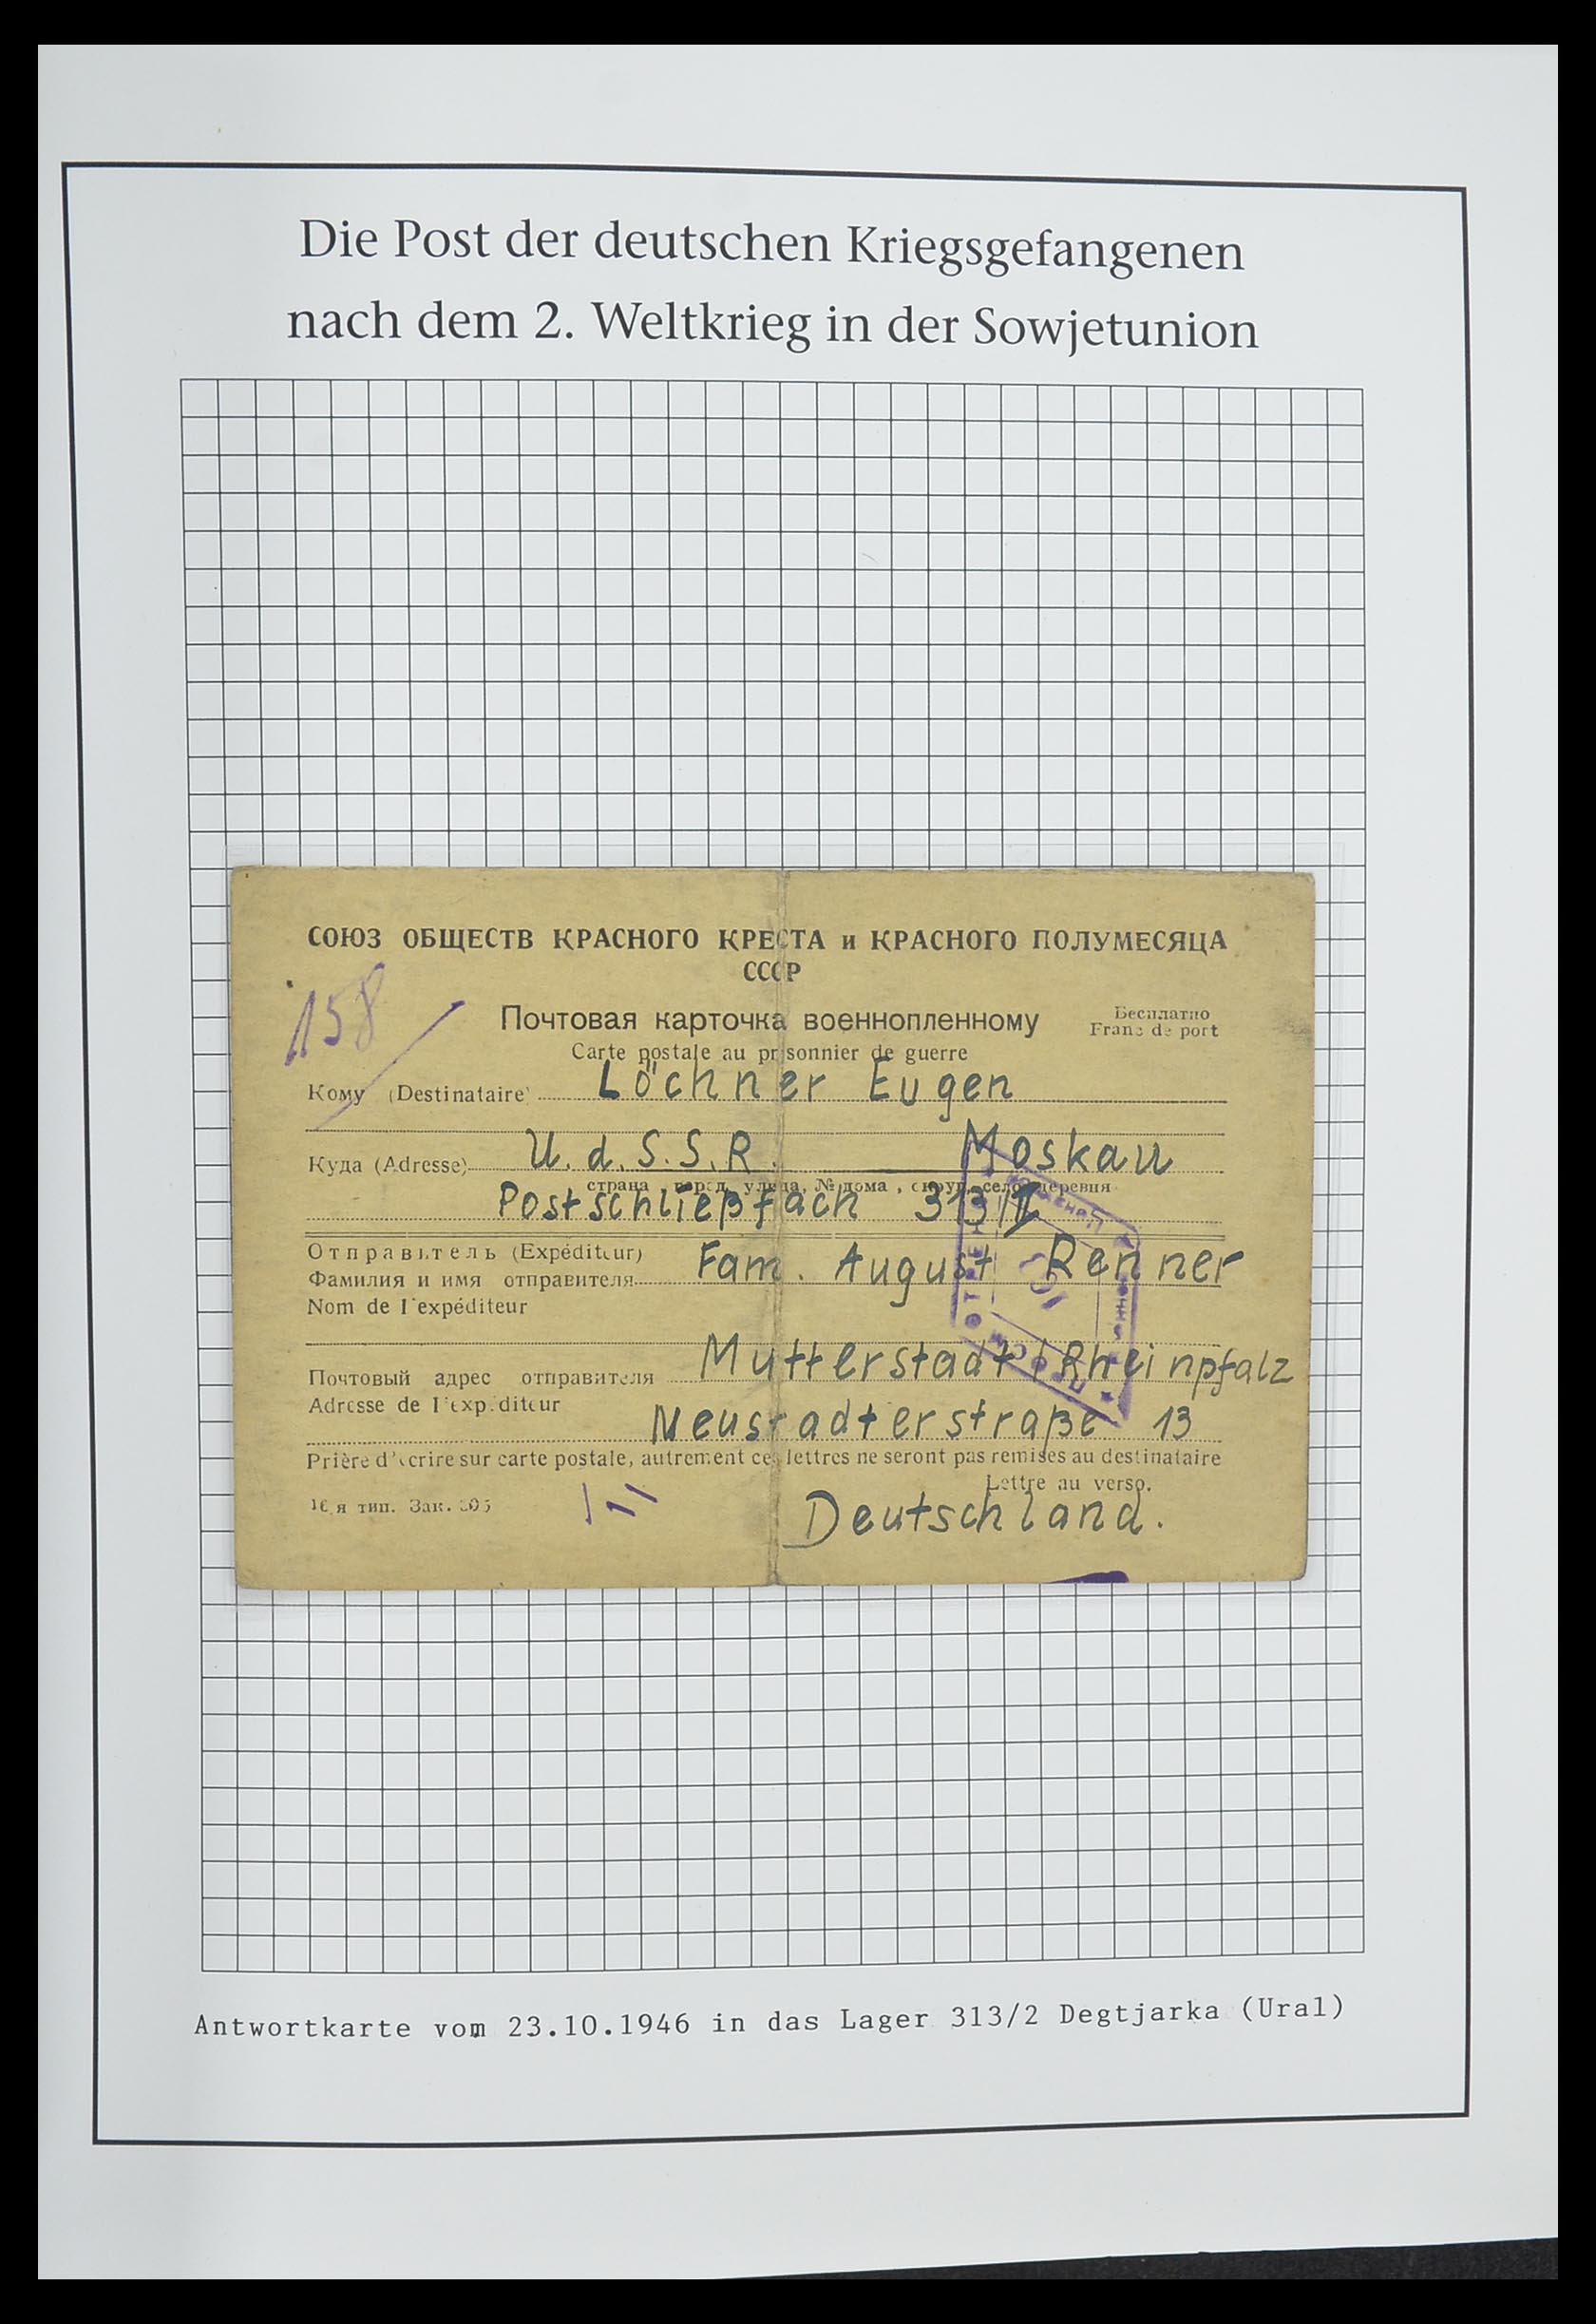 Die Post der deutschen Kriegsgefangenen
nach dem 2. Weltkrieg in der Sowjetunion
СОЮЗ ОБЩЕСТВ КРАСНОГО КРЕСТА и КРАСНОГО ПОЛУМЕСЯЦА
СССР
158
Почтовая карточка военнопленному
Бесплатно
Franc de port
Carte postale au prisonnier de guerre
Кому (Destinataire) Löchner Eugen
Куда (Adresse) U.d.S.S.R. Moskau
страна, город, улица, № дома, округ, село, деревня
Postschließfach 313
Отправитель (Expéditeur)
Фамилия и имя отправителя Fam. August Renner
Nom de l'expéditeur
Почтовый адрес отправителя Mutterstadt/Rheinpfalz
Adresse de l'expéditeur
Neustadterstraße 13
Prière d'écrire sur carte postale, autrement ces lettres ne seront pas remises au destinataire
Lettre au verso.
16 я тип. Зак.
Deutschland.
Antwortkarte vom 23.10.1946 in das Lager 313/2 Degtjarka (Ural)